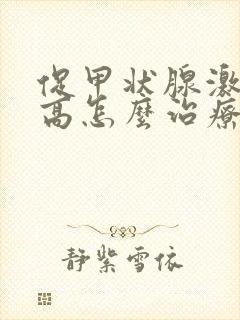 促甲状腺激
高怎麼治療
静紫雪依